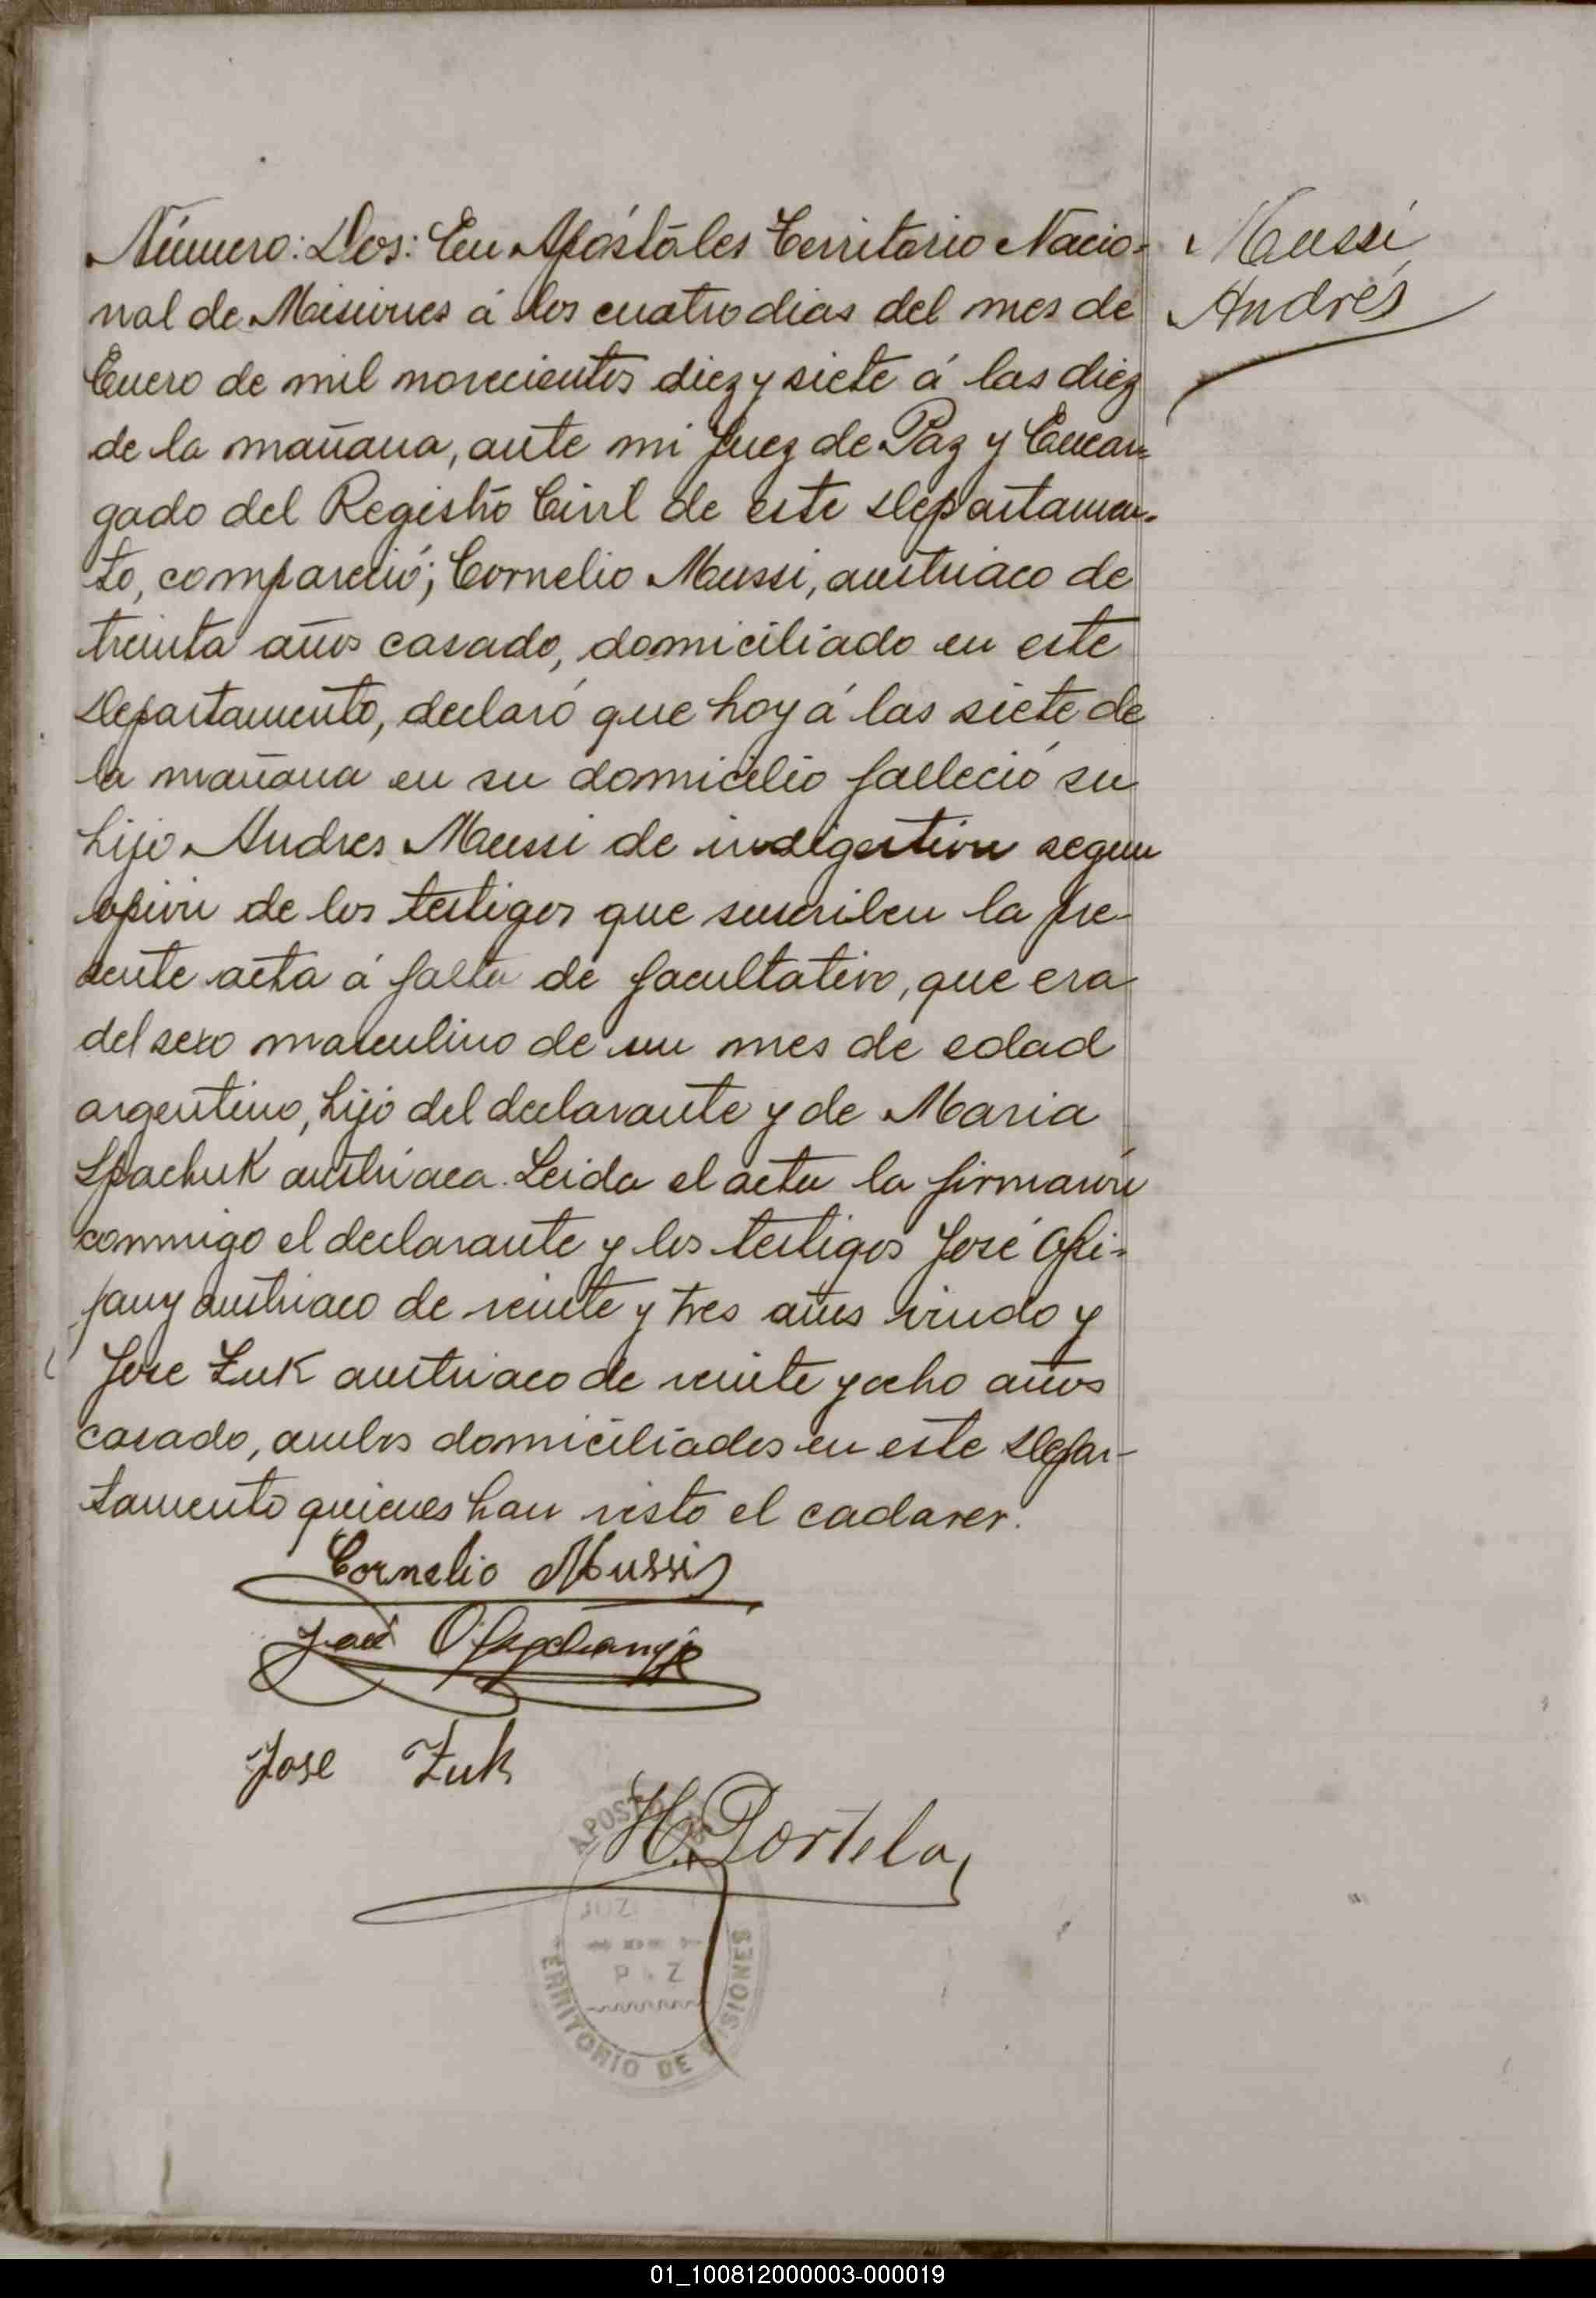 Número: Dos: En Apóstóles Territorio Nacio-
nal de Misiones á los cuatro dias del mes de
Enero de mil novecientos diez y siete á las diez
de la mañana, ante mi Juez de Paz y Encar-
gado del Registro Civil de este Departamen-
to, compareció; Cornelio Mussi, austriaco de
treinta años casado, domiciliado en este
Departamento, declaró que hoy á las siete de
la mañana en su domicilio falleció su
hijo Andres Mussi de indigestion segun
opion de los testigos que suscriben la pre-
sente acta á falta de facultativo, que era
del sexo masculino de un mes de edad
argentino, hijo del declarante y de Maria
Spachuk austriaca. Leida el acta la firmaron
conmigo el declarante y los testigos José Opi-
pany austriaco de veinte y tres años viudo y
Jose Zuk austriaco de veinte y ocho años
casado, ambos domiciliados en este Depar-
tamento quienes han visto el cadaver.
Mussi
Andrés
Cornelio Mussi
José
Jose Zuk
H. Portela
APOSTO
JUZ
P Z
TERRITORIO DE MISIONES
01_100812000003-000019